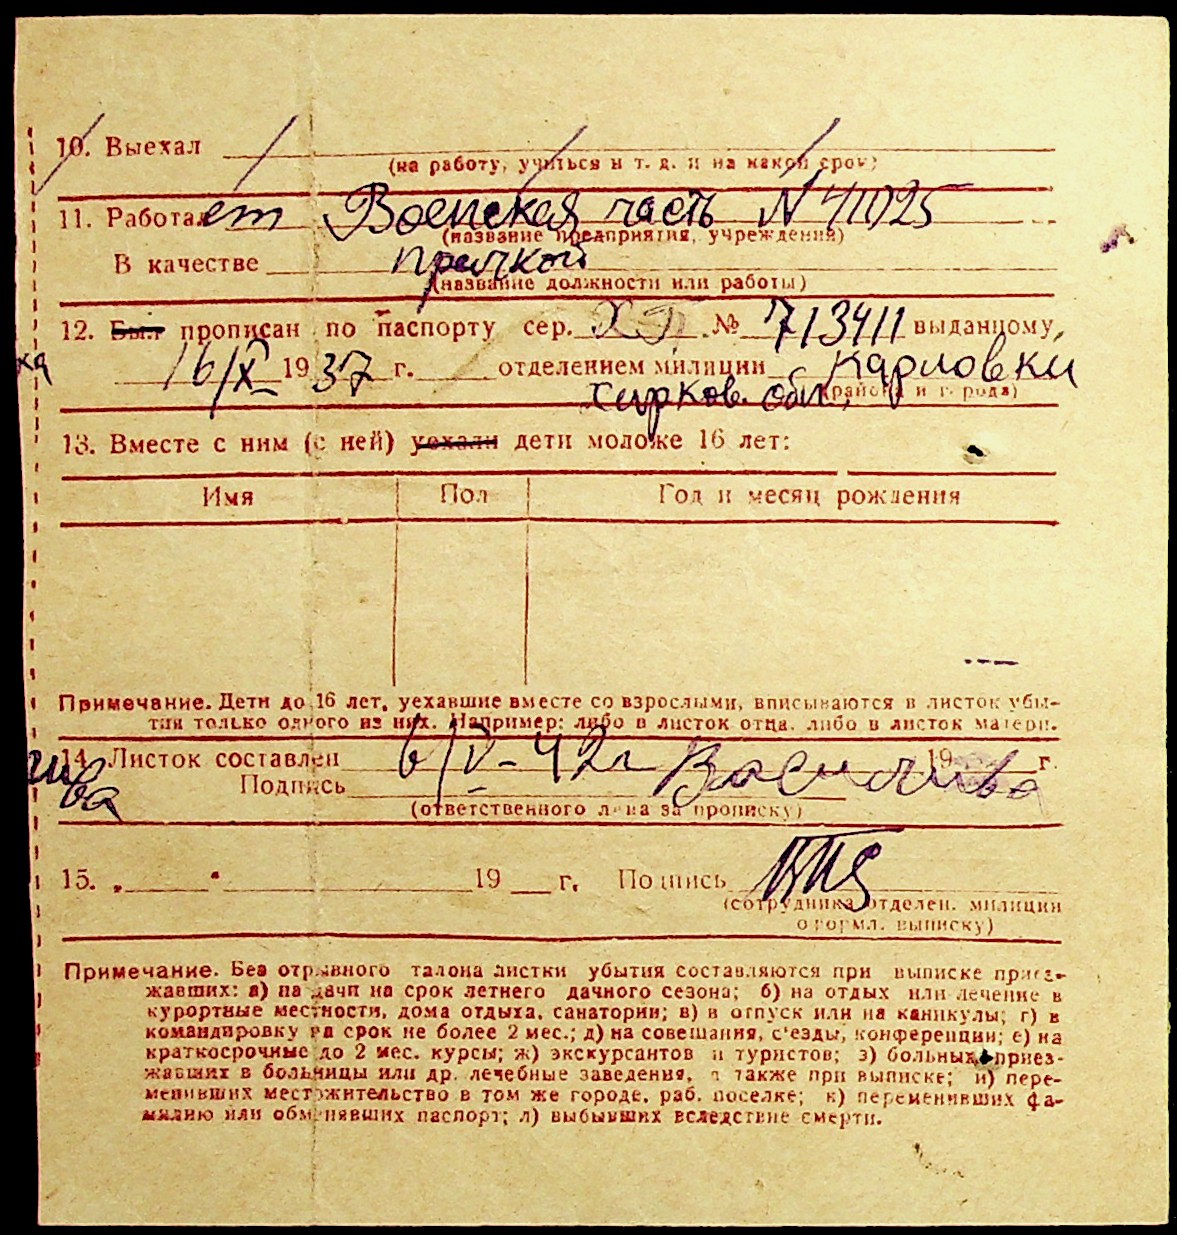 10. Выехал
(на работу, учиться и т. д. и на какой срок)
11. Работает Военская часть N
(название предприятия, учреждения)
В качестве прачкой
(название должности или работы)
12. Был прописан по паспорту сер. № 713411 выданному,
16/X 1937 г. отделением милиции Карловки
(района и города)
обл.,
13. Вместе с ним (с ней) уехали дети моложе 16 лет:
Имя Пол Год и месяц рождения
Примечание. Дети до 16 лет, уехавшие вместе со взрослыми, вписываются в листок убы-
тия только одного из них. Например: либо в листок отца, либо в листок матери.
14. Листок составлен 6/V-42г 19 г.
Подпись
(ответственного лица за прописку)
15. „ “ 19 г. Подпись
(сотрудника отделен. милиции
оформл. выписку)
Примечание. Без отрывного талона листки убытия составляются при выписке приез-
жавших: а) на дачи на срок летнего дачного сезона; б) на отдых или лечение в
курортные местности, дома отдыха, санатории; в) в отпуск или на каникулы; г) в
командировку на срок не более 2 мес.; д) на совещания, с'езды, конференции; е) на
краткосрочные до 2 мес. курсы; ж) экскурсантов и туристов; з) больных, приез-
жавших в больницы или др. лечебные заведения, а также при выписке; и) пере-
менивших местожительство в том же городе, раб. поселке; к) переменивших фа-
милию или обменявших паспорт; л) выбывших вследствие смерти.